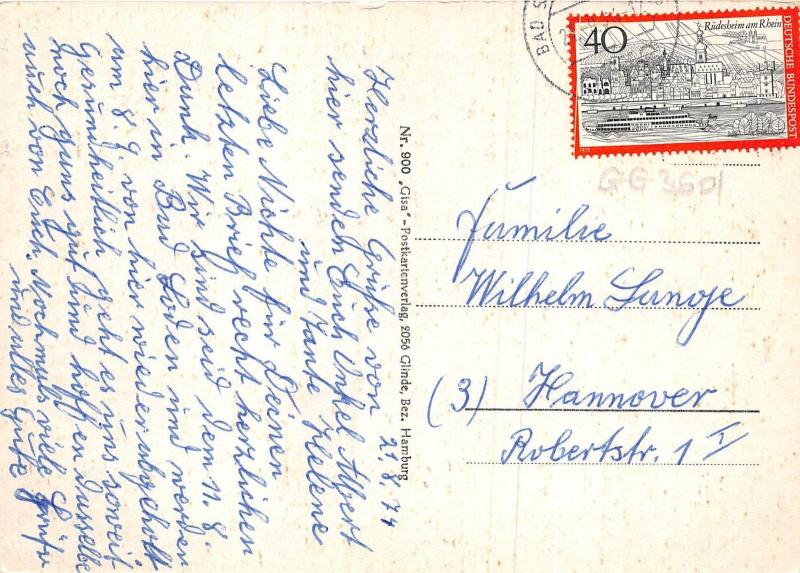 21.8.74
Herzliche Grüße von
hier senden Euch Onkel Albert
und Tante Helene
Liebe Nichte für Deinen
letzten Brief recht herzlichen
Dank. Wir sind seid dem 11.8.
hier in Bad Soden und werden
um 8.9. von hier wieder abgeholt
Gesundheitlich geht es uns soweit
noch ganz gut und hoffen dasselbe
auch von Euch. Nochmals viele Grüße
und alles Gute
Nr. 900 „Gisa"-Postkartenverlag, 2056 Glinde, Bez. Hamburg
BAD S
40
Rüdesheim am Rhein
DEUTSCHE BUNDESPOST
GG3601
Familie
Wilhelm Lange
(3) Hannover
Robertstr. 1 I